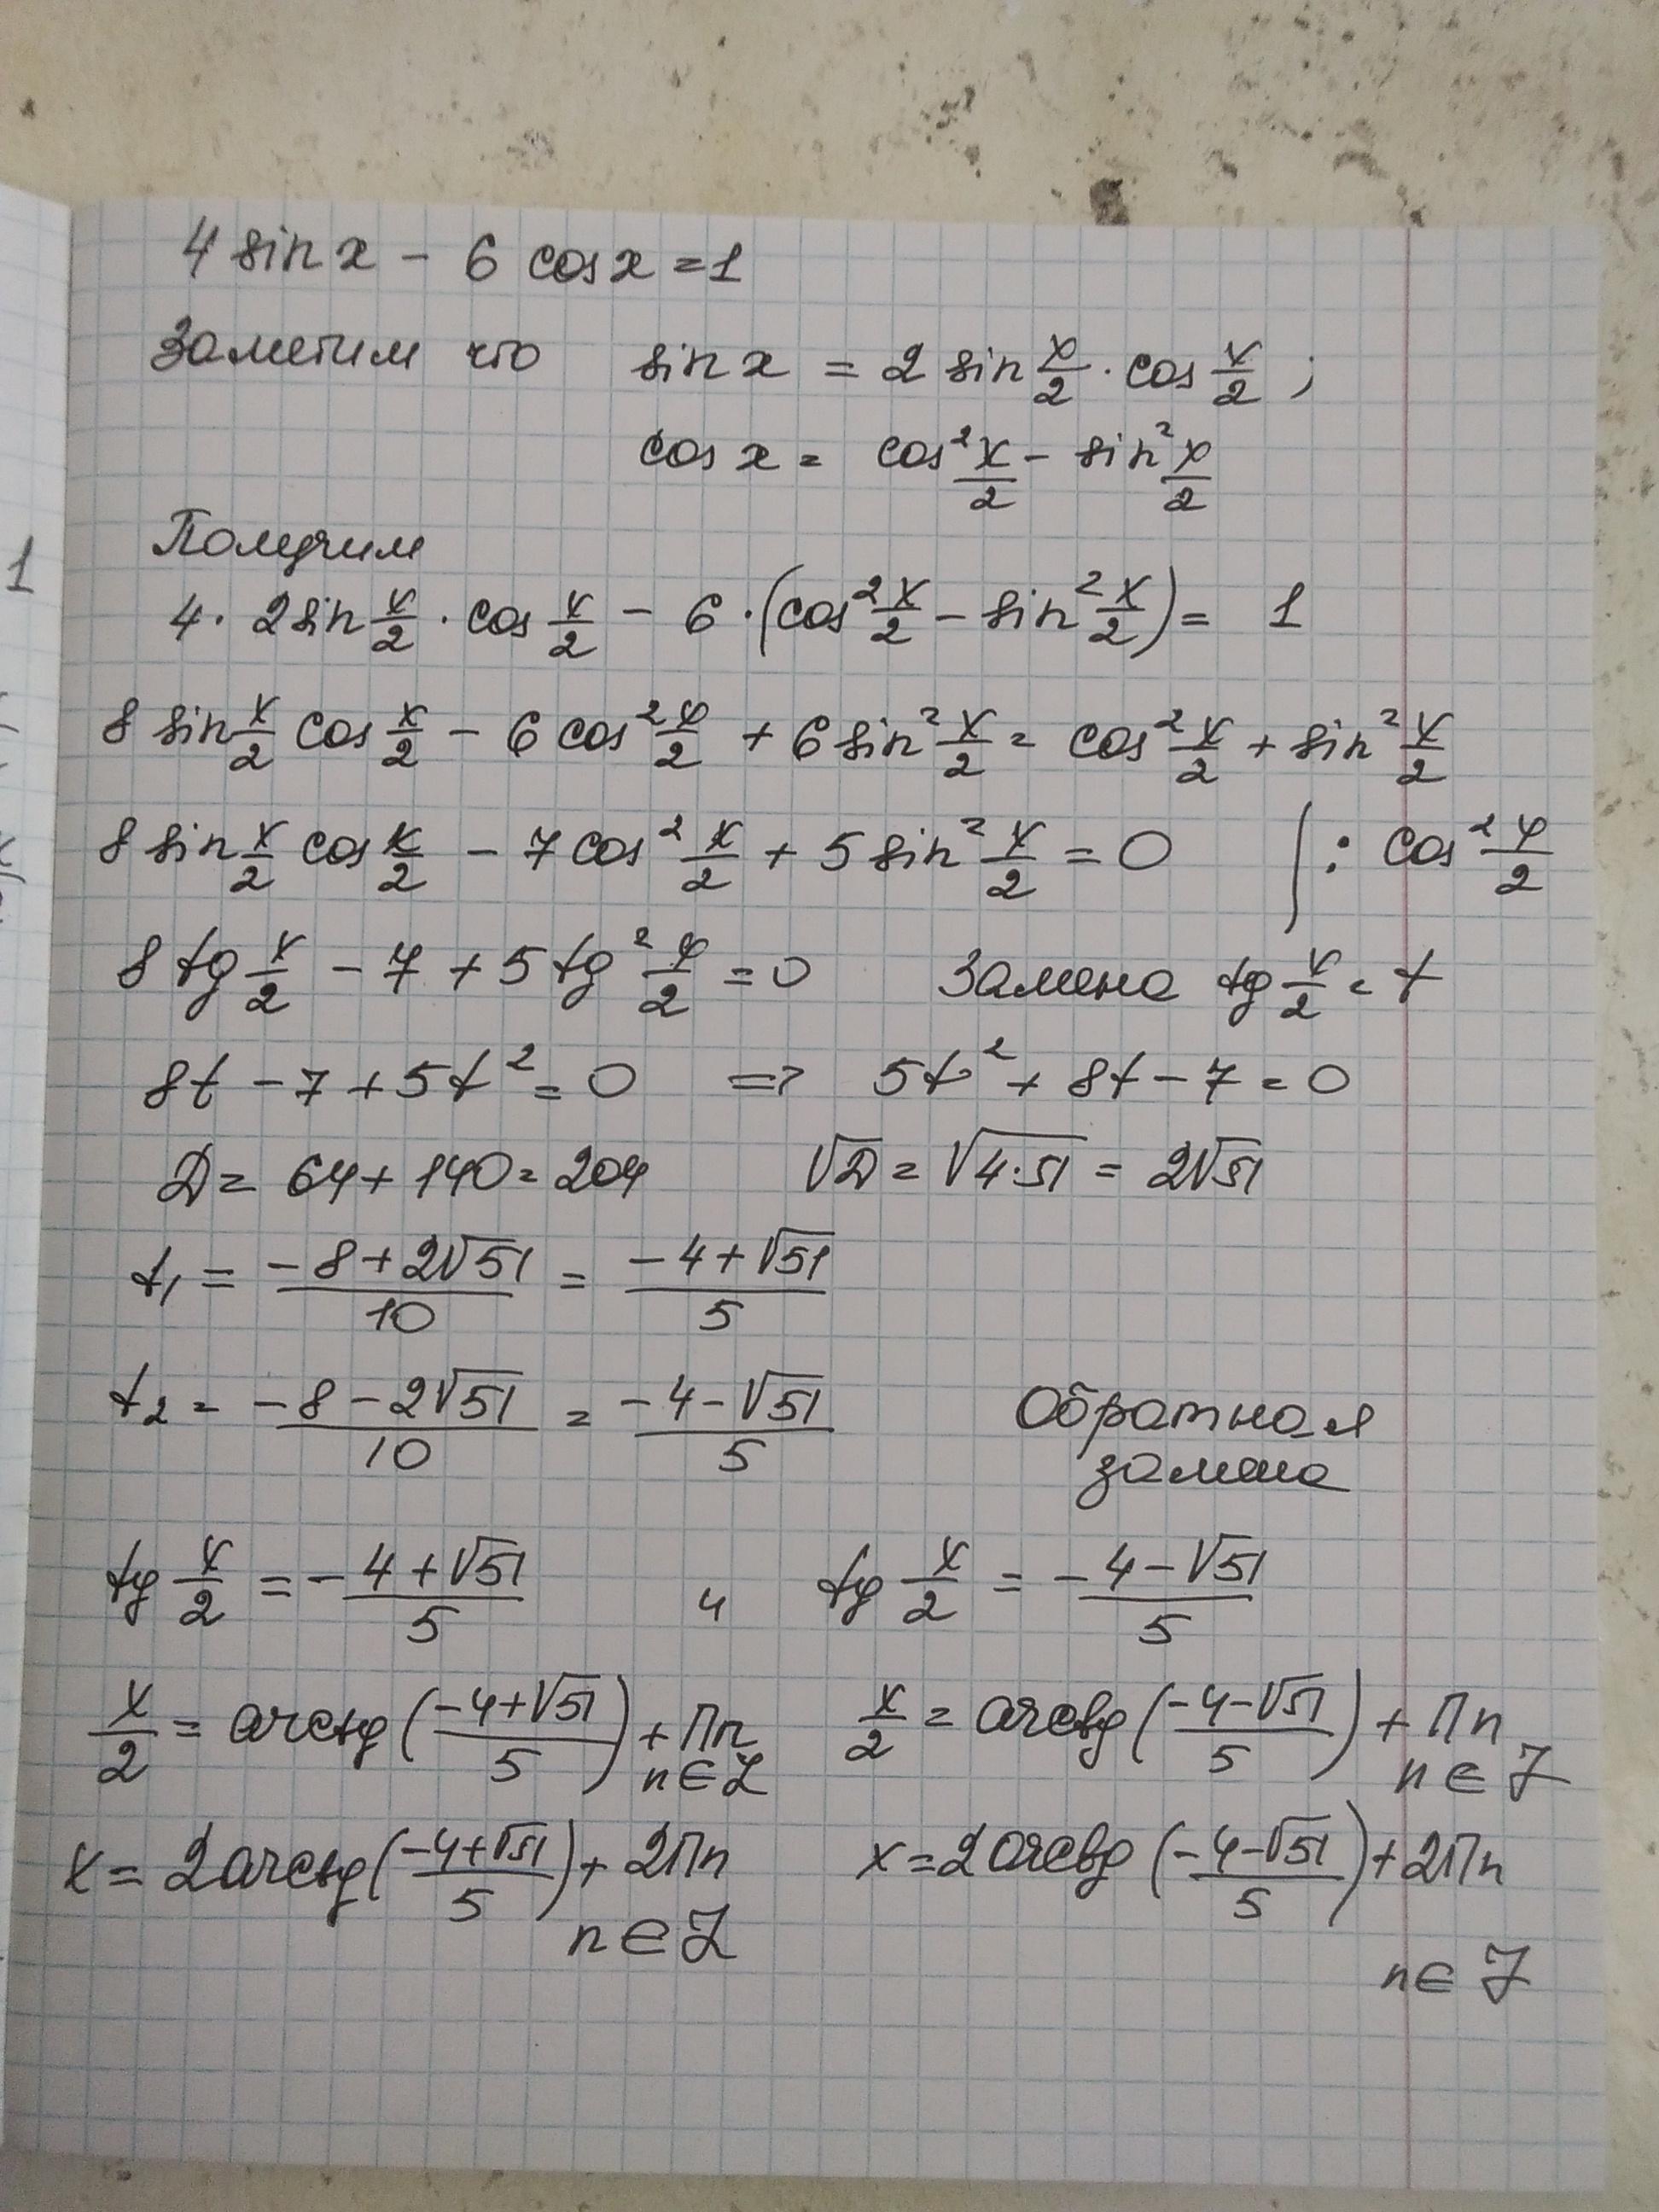 4 sin x - 6 cos x = 1
Заметим что sin x = 2 sin x/2 · cos x/2 ;
cos x = cos² x/2 - sin² x/2
Получим
1
4 · 2 sin x/2 · cos x/2 - 6 · (cos² x/2 - sin² x/2) = 1
8 sin x/2 cos x/2 - 6 cos² x/2 + 6 sin² x/2 = cos² x/2 + sin² x/2
8 sin x/2 cos x/2 - 7 cos² x/2 + 5 sin² x/2 = 0 | : cos² x/2
8 tg x/2 - 7 + 5 tg² x/2 = 0 Замена tg x/2 = t
8t - 7 + 5t² = 0 => 5t² + 8t - 7 = 0
D = 64 + 140 = 204 √D = √4·51 = 2√51
t₁ = -8 + 2√51/10 = -4 + √51/5
t₂ = -8 - 2√51/10 = -4 - √51/5 Обратная
замена
tg x/2 = -4 + √51/5 и tg x/2 = -4 - √51/5
x/2 = arctg (-4+√51/5) + Πn n ∈ Z x/2 = arctg (-4-√51/5) + Πn n ∈ Z
x = 2 arctg (-4+√51/5) + 2Πn x = 2 arctg (-4-√51/5) + 2Πn
n ∈ Z n ∈ Z